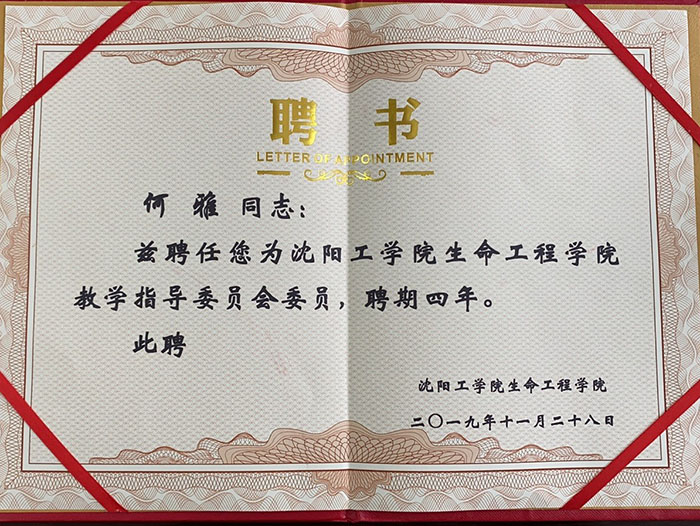 聘 书
LETTER OF APPOINTMENT
何 雅 同志：
兹聘任您为沈阳工学院生命工程学院
教学指导委员会委员，聘期四年。
此聘
沈阳工学院生命工程学院
二〇一九年十一月二十八日